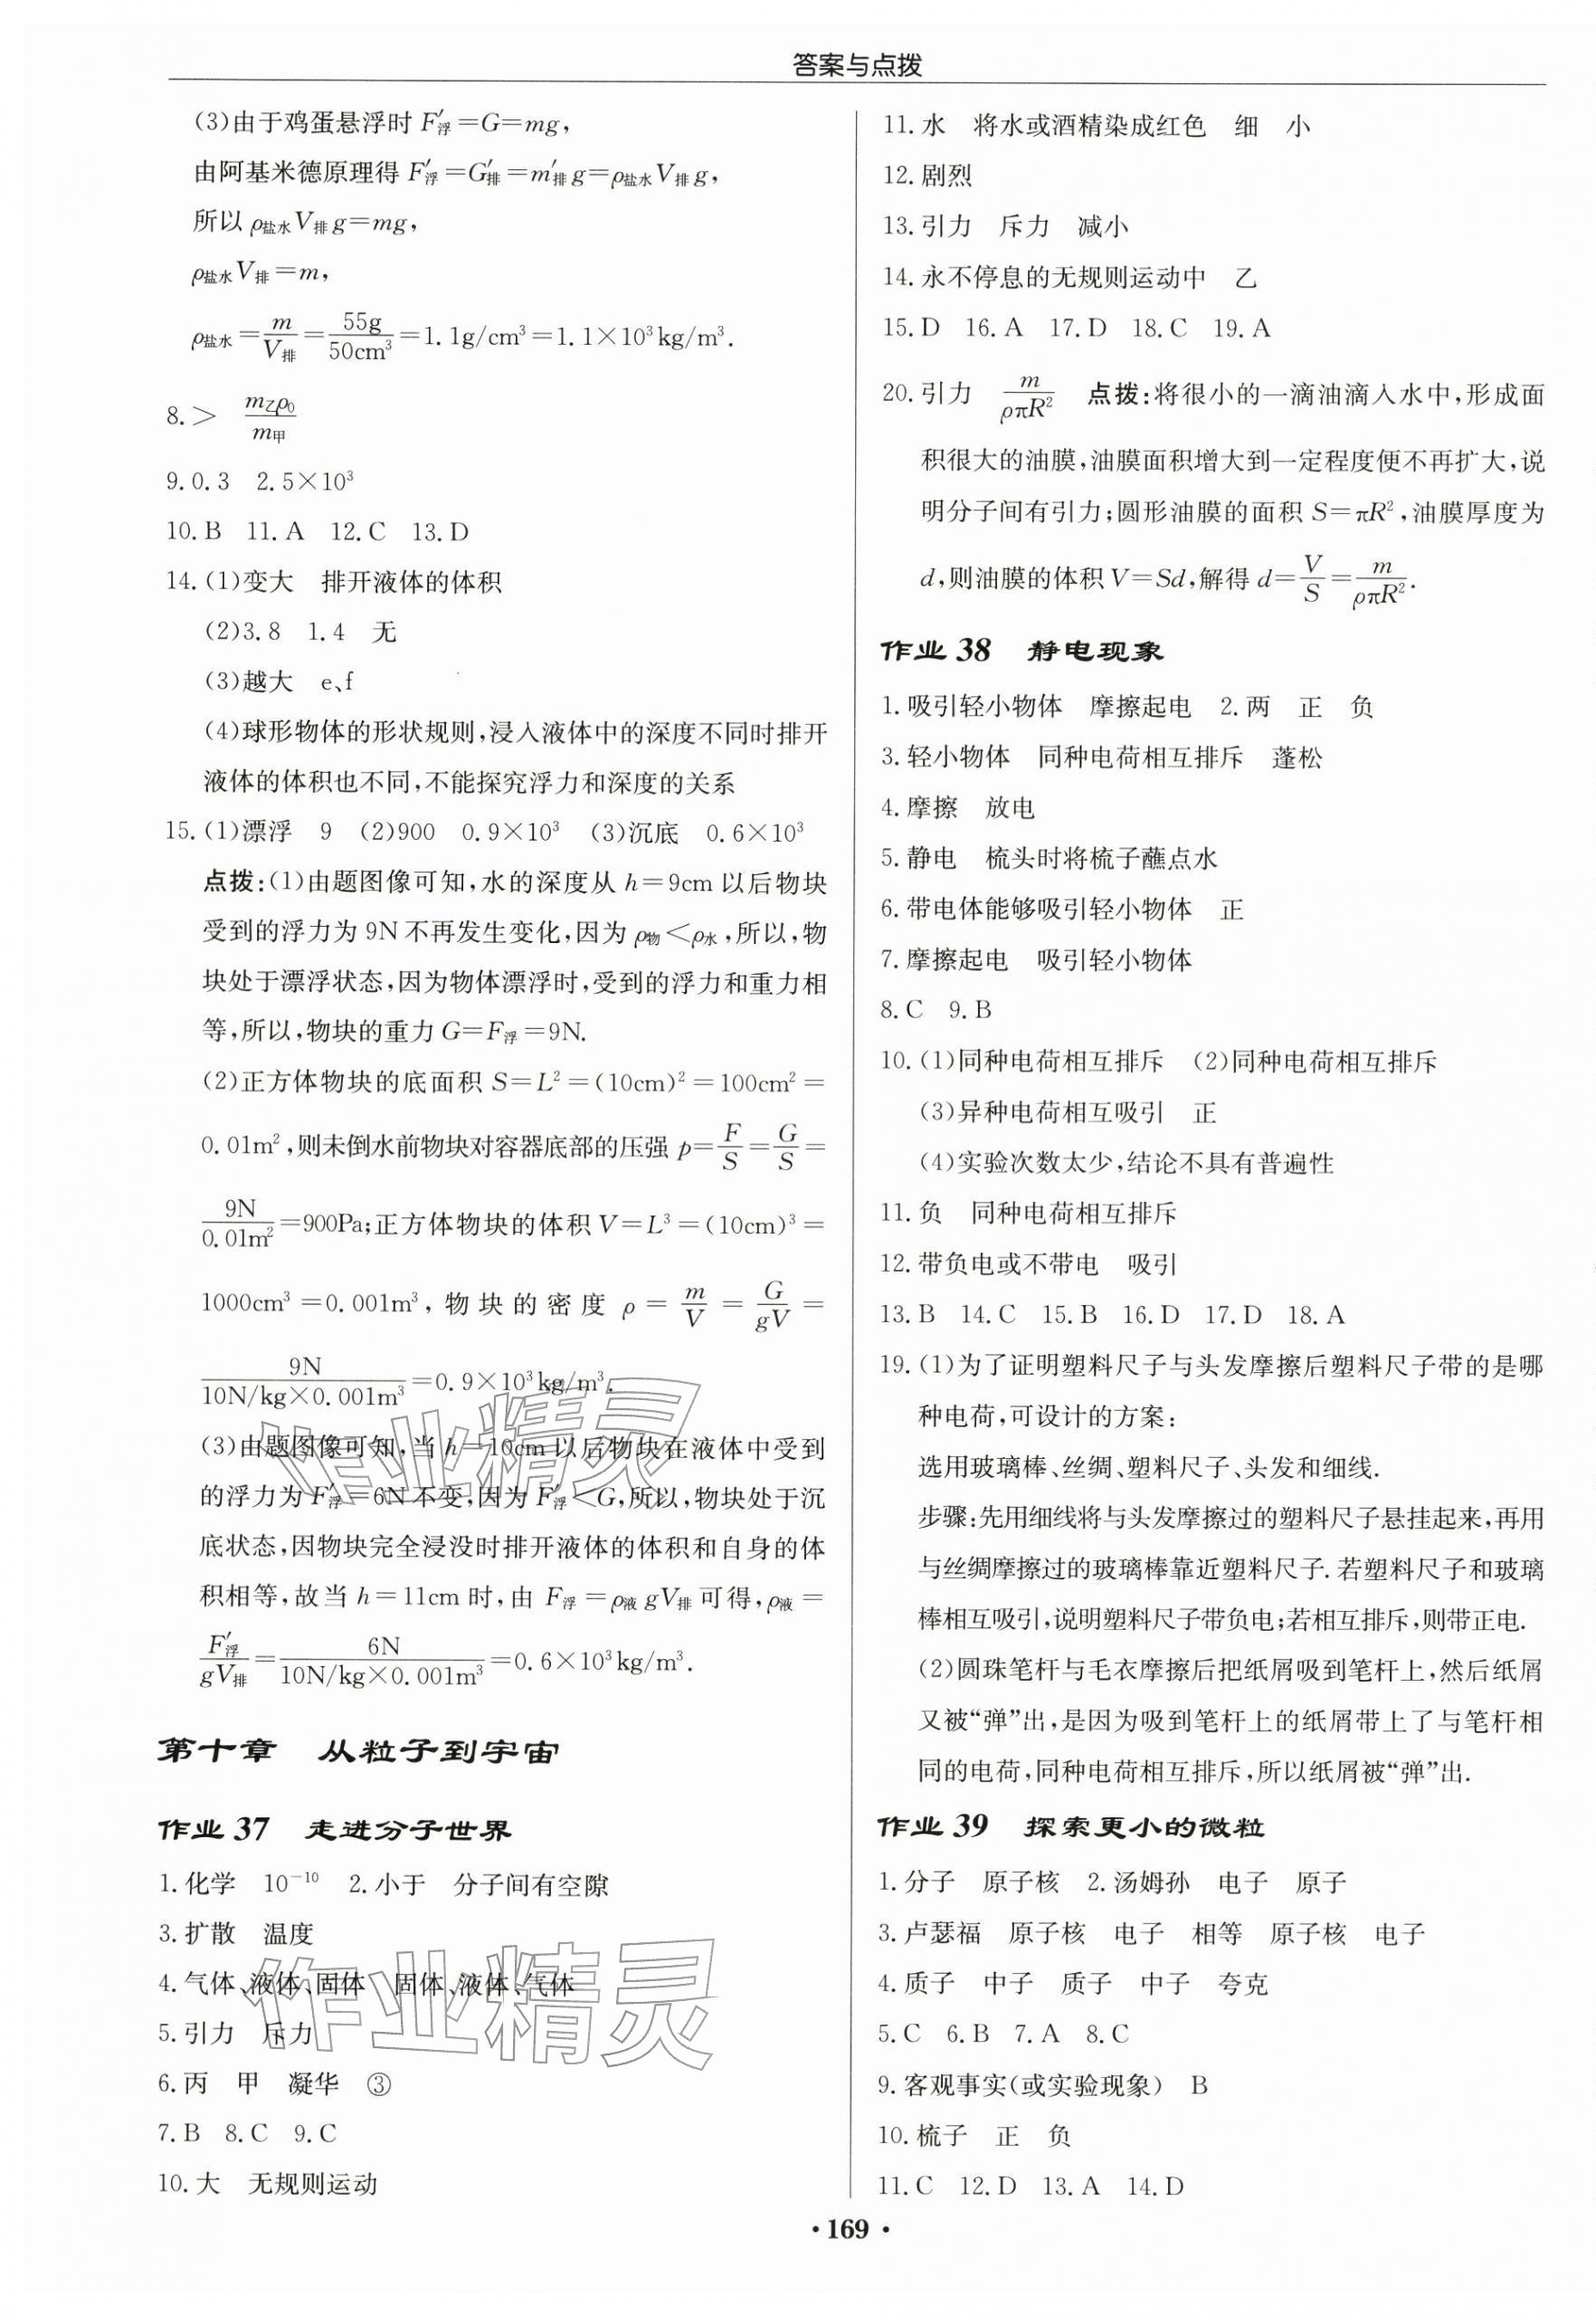 答案与点拨
(3)由于鸡蛋悬浮时 F′浮=G=mg,
由阿基米德原理得 F′浮=G′排=m′排g=ρ盐水V排g,
所以 ρ盐水V排g=mg,
ρ盐水V排=m,
ρ盐水=m/V排=55g/50cm³=1.1g/cm³=1.1×10³kg/m³.
8.> m乙ρ₀/m甲
9.0.3 2.5×10³
10.B 11.A 12.C 13.D
14.(1)变大 排开液体的体积
(2)3.8 1.4 无
(3)越大 e、f
(4)球形物体的形状规则,浸入液体中的深度不同时排开
液体的体积也不同,不能探究浮力和深度的关系
15.(1)漂浮 9 (2)900 0.9×10³ (3)沉底 0.6×10³
点拨:(1)由题图像可知,水的深度从 h=9cm 以后物块
受到的浮力为 9N 不再发生变化,因为 ρ物<ρ水,所以,物
块处于漂浮状态,因为物体漂浮时,受到的浮力和重力相
等,所以,物块的重力 G=F浮=9N.
(2)正方体物块的底面积 S=L²=(10cm)²=100cm²=
0.01m²,则未倒水前物块对容器底部的压强 p=F/S=G/S=
9N/0.01m²=900Pa;正方体物块的体积 V=L³=(10cm)³=
1000cm³=0.001m³,物块的密度 ρ=m/V=G/gV=
9N/10N/kg×0.001m³=0.9×10³kg/m³.
(3)由题图像可知,当 h=10cm 以后物块在液体中受到
的浮力为 F′浮=6N 不变,因为 F′浮<G,所以,物块处于沉
底状态,因物块完全浸没时排开液体的体积和自身的体
积相等,故当 h=11cm 时,由 F浮=ρ液gV排可得,ρ液=
F′浮/gV排=6N/10N/kg×0.001m³=0.6×10³kg/m³.
第十章 从粒子到宇宙
作业 37 走进分子世界
1.化学 10⁻¹⁰ 2.小于 分子间有空隙
3.扩散 温度
4.气体、液体、固体 固体、液体、气体
5.引力 斥力
6.丙 甲 凝华 ③
7.B 8.C 9.C
10.大 无规则运动
11.水 将水或酒精染成红色 细 小
12.剧烈
13.引力 斥力 减小
14.永不停息的无规则运动中 乙
15.D 16.A 17.D 18.C 19.A
20.引力 m/ρπR² 点拨:将很小的一滴油滴入水中,形成面
积很大的油膜,油膜面积增大到一定程度便不再扩大,说
明分子间有引力;圆形油膜的面积 S=πR²,油膜厚度为
d,则油膜的体积 V=Sd,解得 d=V/S=m/ρπR².
作业 38 静电现象
1.吸引轻小物体 摩擦起电 2.两 正 负
3.轻小物体 同种电荷相互排斥 蓬松
4.摩擦 放电
5.静电 梳头时将梳子蘸点水
6.带电体能够吸引轻小物体 正
7.摩擦起电 吸引轻小物体
8.C 9.B
10.(1)同种电荷相互排斥 (2)同种电荷相互排斥
(3)异种电荷相互吸引 正
(4)实验次数太少,结论不具有普遍性
11.负 同种电荷相互排斥
12.带负电或不带电 吸引
13.B 14.C 15.B 16.D 17.D 18.A
19.(1)为了证明塑料尺子与头发摩擦后塑料尺子带的是哪
种电荷,可设计的方案:
选用玻璃棒、丝绸、塑料尺子、头发和细线.
步骤:先用细线将与头发摩擦过的塑料尺子悬挂起来,再用
与丝绸摩擦过的玻璃棒靠近塑料尺子.若塑料尺子和玻璃
棒相互吸引,说明塑料尺子带负电;若相互排斥,则带正电.
(2)圆珠笔杆与毛衣摩擦后把纸屑吸到笔杆上,然后纸屑
又被“弹”出,是因为吸到笔杆上的纸屑带上了与笔杆相
同的电荷,同种电荷相互排斥,所以纸屑被“弹”出.
作业 39 探索更小的微粒
1.分子 原子核 2.汤姆孙 电子 原子
3.卢瑟福 原子核 电子 相等 原子核 电子
4.质子 中子 质子 中子 夸克
5.C 6.B 7.A 8.C
9.客观事实(或实验现象) B
10.梳子 正 负
11.C 12.D 13.A 14.D
作业精灵
作业精灵
·169·